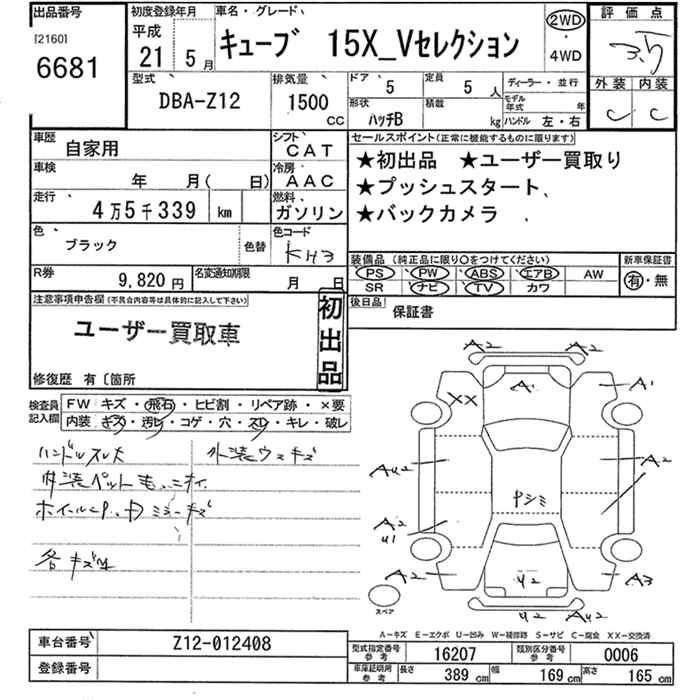 出品番号
[2160]
6681
初度登録年月
平成
21 5月
車名・グレード
キューブ 15X_Vセレクション
2WD
・
4WD
評価点
3.5
外装 内装
C C
型式
DBA-Z12
排気量
1500 CC
ドア 5
定員 5人
形状 ハッチB
積載 kg
ディーラー・並行
モデル年式 年
ハンドル 左・右
車歴 自家用
シフト CAT
車検 年 月( 日)
冷房 AAC
走行 4万5千339 km
燃料 ガソリン
色 ブラック
色替
色コード KH3
R券 9,820円
名変通知期限 月 日
セールスポイント(正常に機能するものに限ります)
★初出品 ★ユーザー買取り
★プッシュスタート
★バックカメラ
装備品(純正品に限り○をつけてください)
PS PW ABS エアB AW
SR ナビ TV カワ
新車保証書
有・無
後日品
保証書
注意事項申告欄(不具合内容等は具体的に記入して下さい)
ユーザー買取車
初出品
修復歴 有〔箇所
検査員記入欄
FW キズ・飛石・ヒビ割・リペア跡・×要
内装 キズ・汚レ・コゲ・穴・スレ・キレ・破レ
ハンドルスレ大
外装ウスキズ
内装ペット毛、ニオイ
各キズ
A2 A2
XX A1 A1
A2
A2
U1
A2 U2 A3
U2
スペア
A-キズ E-エクボ U-凹み W-補修跡 S-サビ C-腐食 XX-交換済
車台番号 Z12-012408
登録番号
型式指定番号参考 16207
類別区分番号参考 0006
車庫証明用参考 長さ 389cm 幅 169cm 高さ 165cm